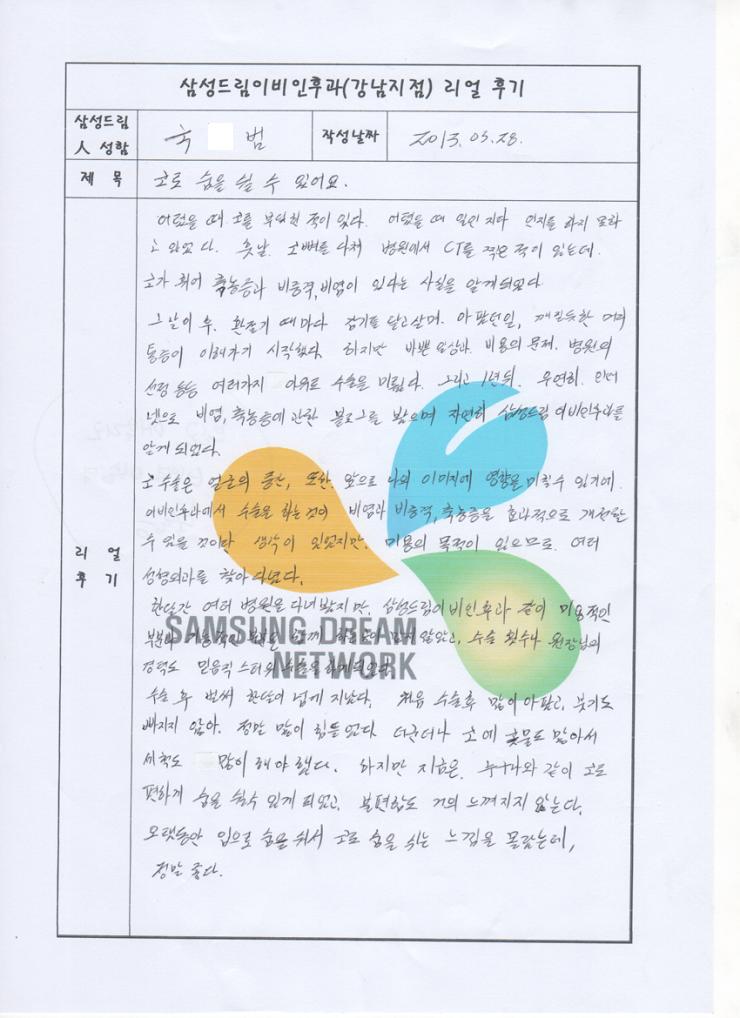 삼성드림이비인후과(강남지점) 리얼 후기
삼성드림
人 성함
국 범
작성날짜
2013.05.28.
제 목
코로 숨을 쉴 수 있어요.
리 얼
후 기
어렸을 때 코를 부딪힌 적이 있다. 어렸을 때 일인지라 인지를 하지 못하
고 있었다. 훗날 코뼈를 다쳐 병원에서 CT를 찍은 적이 있는데.
코가 휘어 축농증과 비중격,비염이 있다는 사실을 알게되었다
그날이 후. 환절기 때마다 감기를 달고살며. 아팠던일, 깨질듯한 머리
통증이 이해가기 시작했다. 하지만 바쁜 일상과. 비용의 문제. 병원의
선정 등등 여러가지 이유로 수술을 미뤘다. 그리고 1년뒤. 우연히. 인터
넷으로 비염,축농증에 관한 블로그를 봤으며 자연히 삼성드림이비인후과를
알게 되었다.
코 수술은 얼굴의 중심, 또한. 앞으로 나의 이미지에 영향을 미칠수 있기에.
이비인후과에서 수술을 하는것이 비염과 비중격,축농증을 효과적으로 개선할
수 있을 것이라 생각이 있었지만. 미용의 목적이 있으므로. 여러
성형외과를 찾아 다녔다.
한달간 여러 병원을 다녀봤지만. 삼성드림이비인후과 같이 미용적인
부분과 기능적인 않았고, 수술 횟수나 원장님의
경력도 믿음직 수술을 하게되었다
수술 후 벌써 한달이 넘게 지났다. 처음 수술후 많이 아팠고, 붓기도
빠지지 않아. 정말 많이 힘들었다. 더군다나 코에 콧물도 많아서
세척도 많이 해야 했다. 하지만 지금은. 누구나와 같이 코로
편하게 숨을 쉴수 있게 되었고, 불편함도 거의 느껴지지 않는다.
오랫동안 입으로 숨을 쉬어서 코로 숨을 쉬는 느낌을 몰랐는데,
정말 좋다.
SAMSUNG DREAM
NETWORK